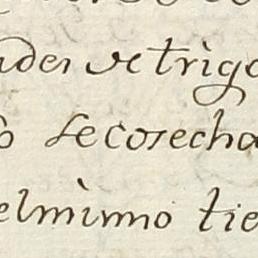 ades de trigo
o se cosecha
elmismo tie